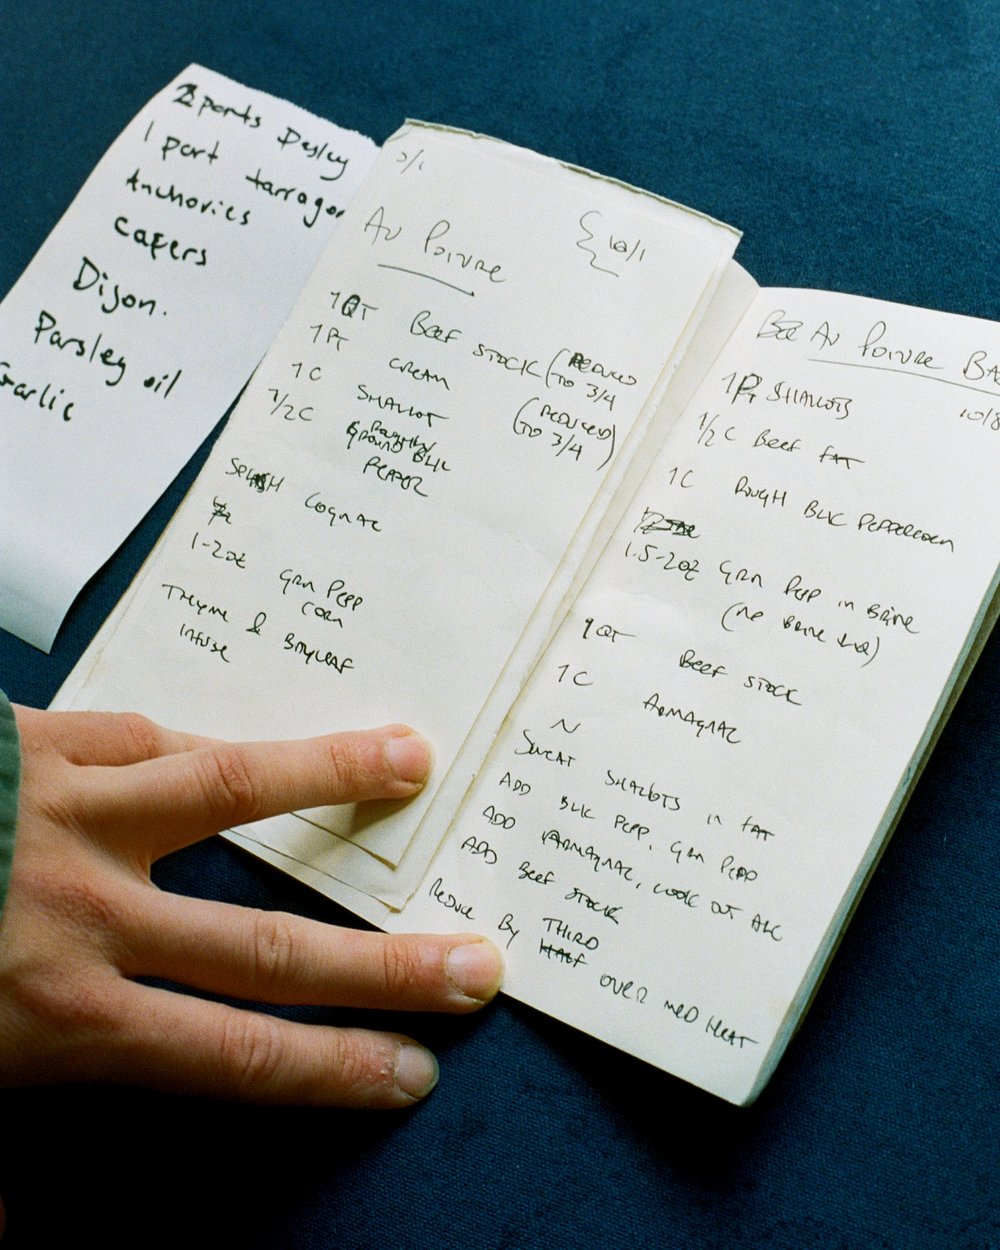 2 parts Parsley
1 part tarragon
Anchovies
Capers
Dijon.
Parsley oil
Garlic
Au Poivre
10/1
1 QT Beef Stock (Reduced to 3/4
1 Pt Cream (Reduced to 3/4)
1 C Shallot
1/2 C Roughly Ground Blk Pepper
Splash Cognac
1-2oz Grn Pepp Corn
Thyme & Bayleaf
Infuse
Au Poivre Bas
10/8
1 Pt Shallots
1/2 C Beef Fat
1C Rough Blk Peppercorn
1.5-2oz Grn Pepp in Brine
(no Brine)
1 QT Beef Stock
1 C Armagnac
Sweat Shallots in Fat
Add Blk Pepp, Grn Pepp
Add Armagnac, Cook out Alc
Add Beef Stock
Reduce By Third
Over Med Heat